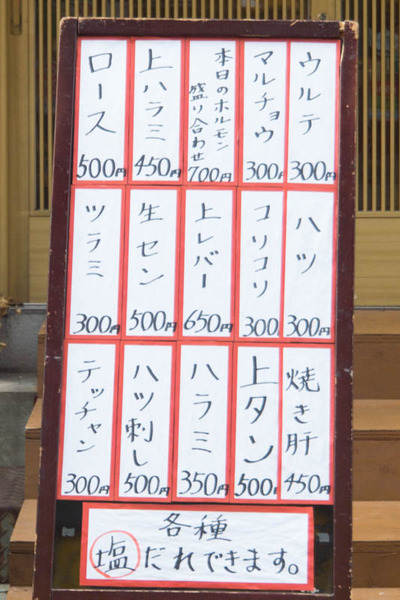 ウルテ
300円
マルチョウ
300円
本日のホルモン
盛り合わせ
700円
上ハラミ
450円
ロース
500円
ハツ
300円
コリコリ
300
上レバー
650円
生セン
500円
ツラミ
300円
焼き肝
450円
上タン
500
ハラミ
350円
ハツ刺し
500円
テッチャン
300円
各種
塩だれできます。